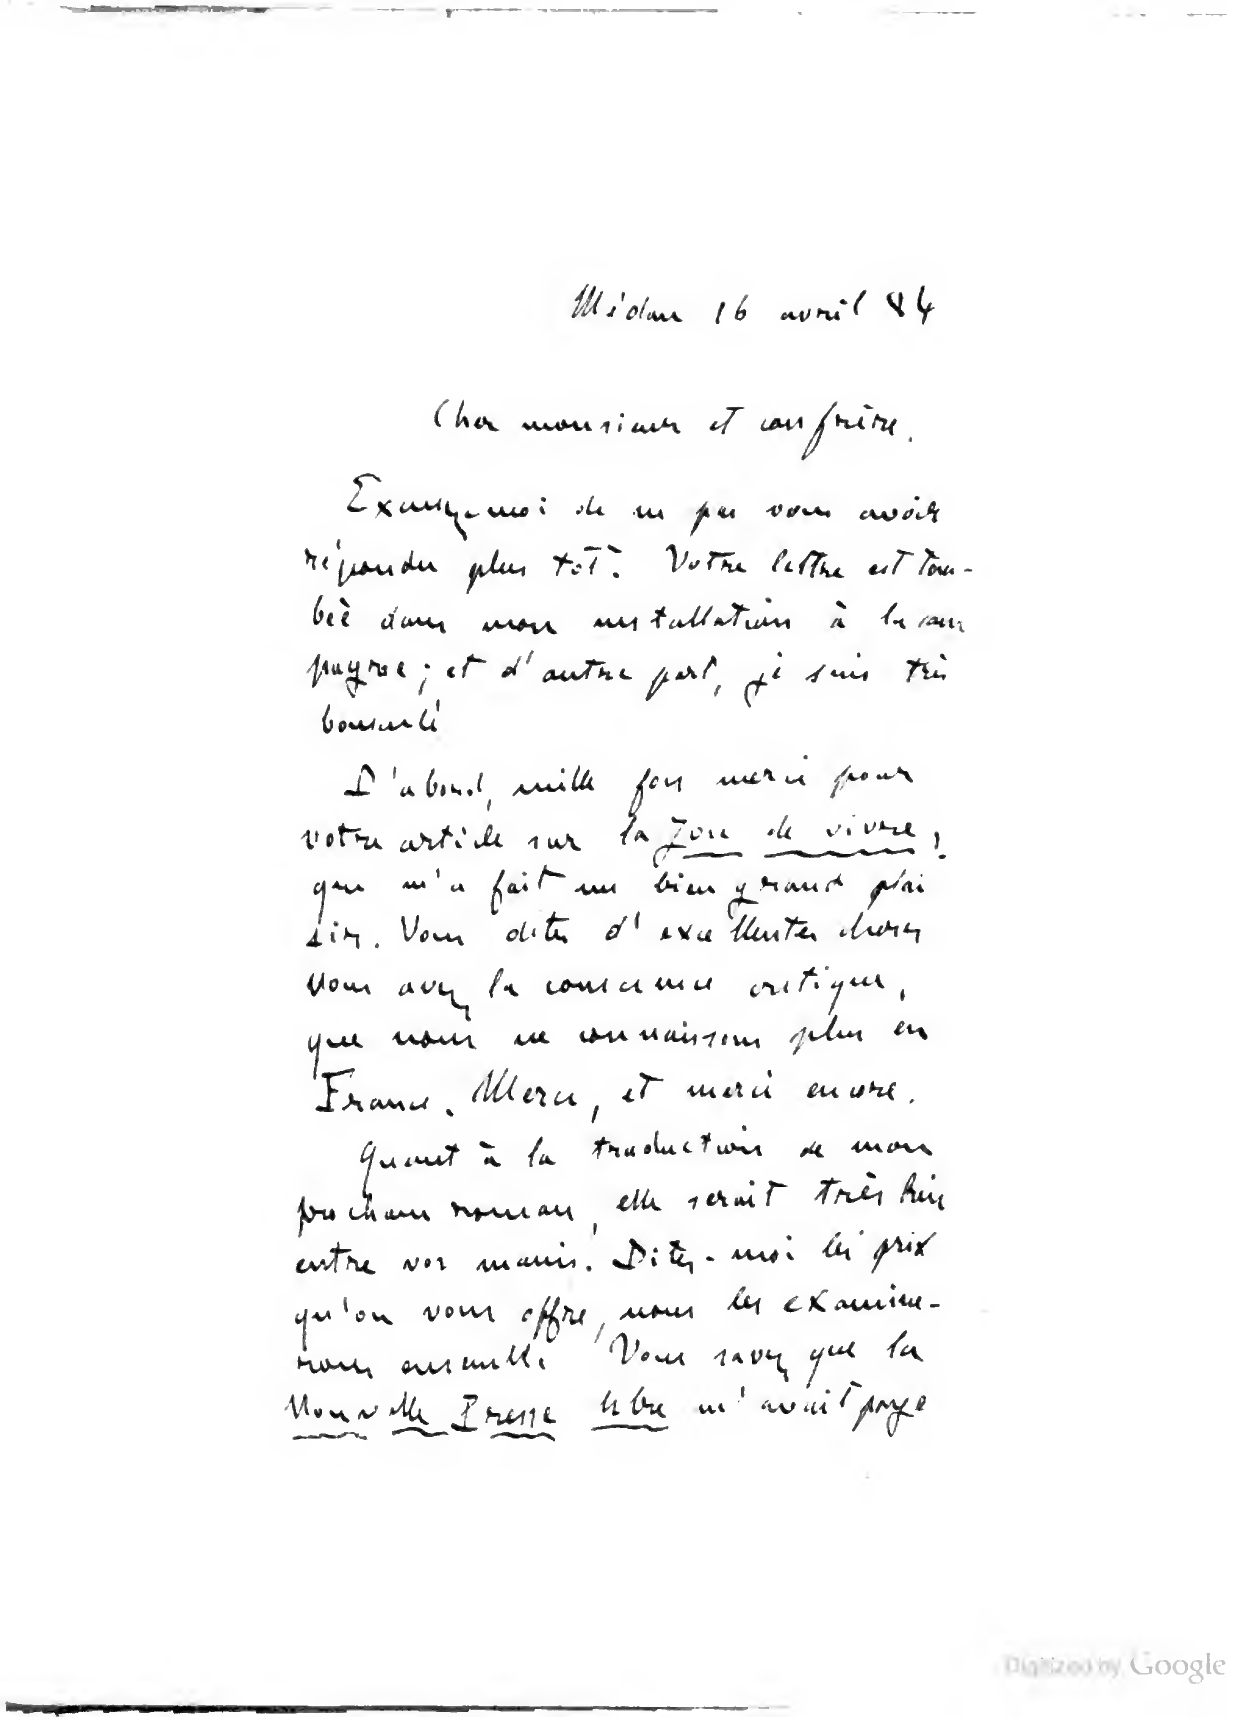 Médan 16 avril 84
Cher monsieur et confrère.
Excusez-moi de ne pas vous avoir
répondu plus tôt. Votre lettre est tom-
bée dans mon installation à la cam
pagne ; et d'autre part, je suis très
bousculé
D'abord, mille fois merci pour
votre article sur la Joie de vivre,
qui m'a fait un bien grand plai
sir. Vous dites d'excellentes choses
Vous avez la conscience critique,
que nous ne connaissons plus en
France. Merci, et merci encore.
Quant à la traduction de mon
prochain roman, elle serait très bien
entre vos mains. Dites-moi les prix
qu'on vous offre, nous les examine-
rons ensemble Vous savez que la
Nouvelle Presse libre m'avait payé
Digitized by Google